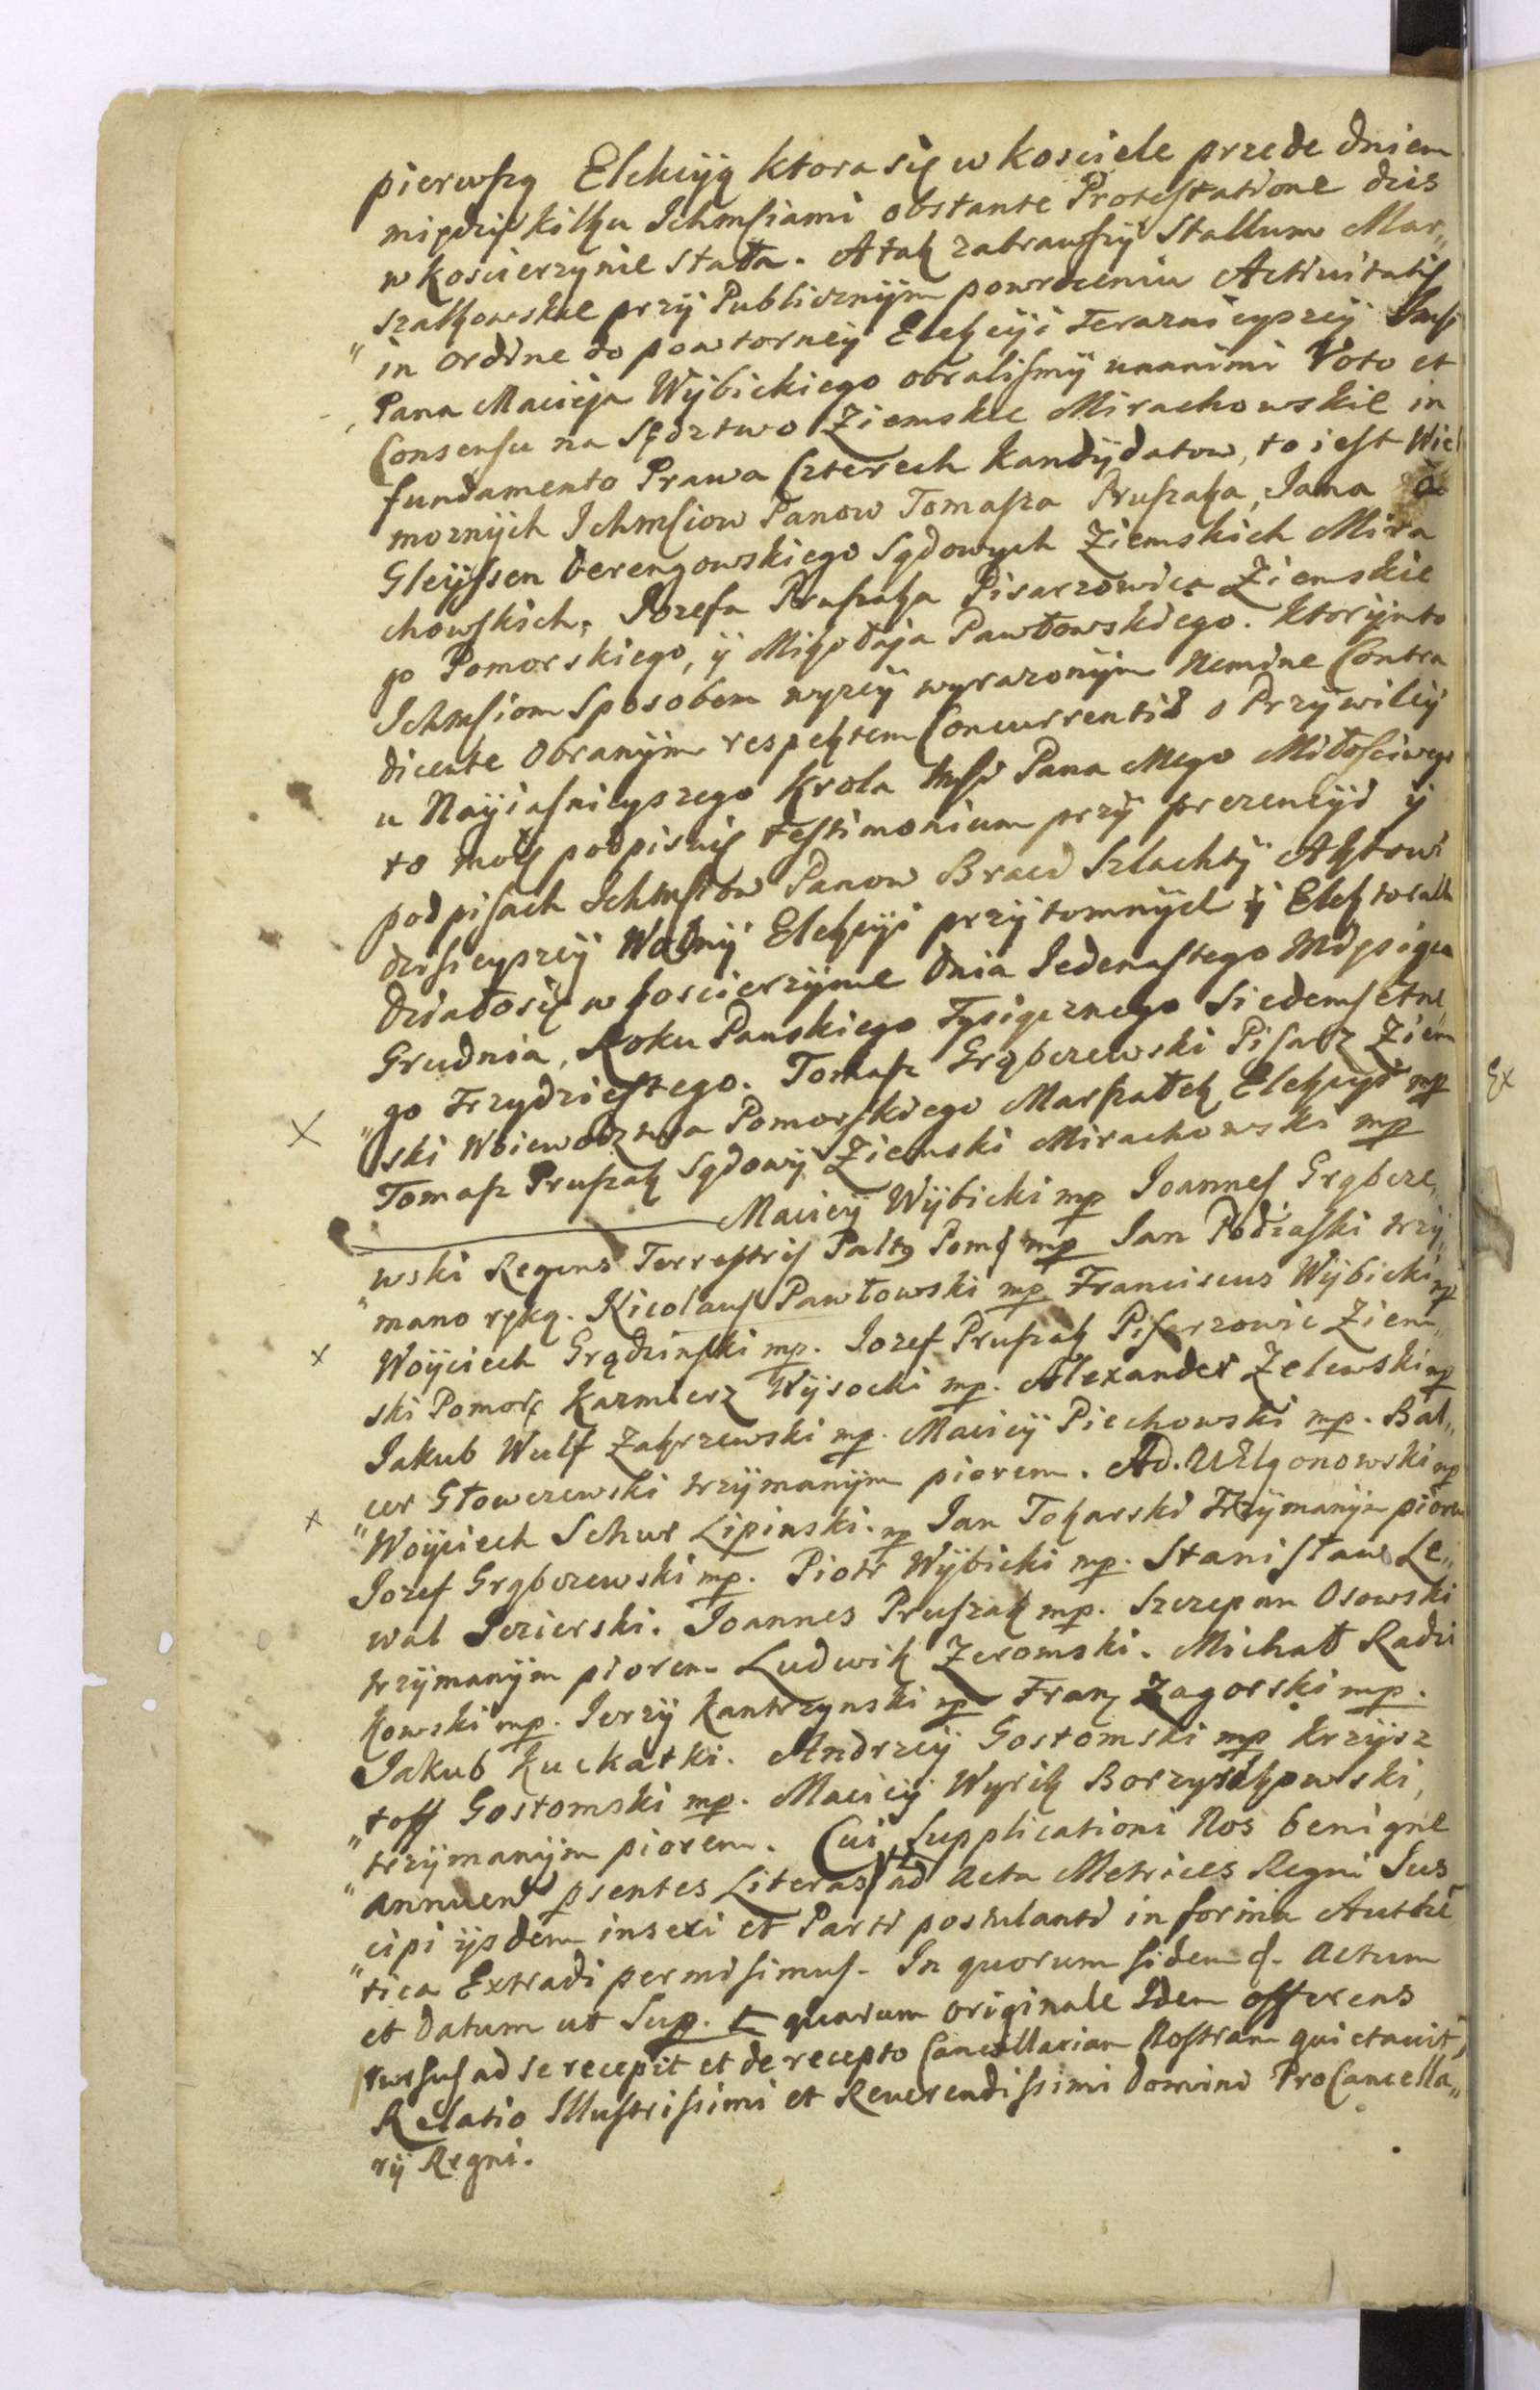 pierwszą Elekcyą ktora się w kosciele przede dniem
między kilku Ichmsciami obstante Protestatione dzis
w koscierzynie stała. A tak zabrawszy Stallum Mar„
„szałkowskie przy Publicznym powroceniu Activitatis
in ordine do powtorney Elekcyi teraznieyszey Imsc
Pana Macieja Wybickiego obralismy unanimi Voto et
Consensu na Sędztwo Ziemskie Mirachowskie in
fundamento Prawa Czterech kandydatow, to iest Wiel
moznych Ichmsciow Panow Tomasza Pruszaka, Jana
Gleyssen Derengowskiego Sądowych Ziemskich Mira
chowskich, Jozefa Pruszaka Pisarzowica Ziemskie
go Pomorskiego, y Mikołaja Pawłowskiego. Ktorymto
Ichmsciom Sposobem wyzey wyrazonym Nemine Contra
dicente Obranym respektem Concurrentis o Przywiley
u Nayiasnieyszego Krola Imsci Pana Mego Miłosciwego
to moie podpisuię testimonium przy prezencyi y
podpisach Ichmsciow Panow Braci Szlachty Aktowi
dzisieyszey Walny Elekcyi przytomnych y Elektorach
Działosię w koscierzynie dnia Jedenastego Miesiąca
Grudnia, Roku Panskiego Tysiącznego Siedemsetne
„go Trzydziestego. Tomasz Grąbczewski Pisarz Ziem
ski Woiewodztwa Pomorskiego Marszałek Elekcyi mp
Tomasz Pruszak Sądowy Ziemski Mirachowski mp
Maciey Wybicki mp Joannes Grąbcze„
„wski Regens Terrestris Paltg Poms mp Jan Podiaski trzy„
„mano ręką. Nicolaus Pawłowski mp Franciscus Wybicki mp
Woyciech Grądzinski mp. Jozef Pruszak Pisarzowic Ziem„
ski Pomors Kazmierz Wysocki mp. Alexander Zelewski mp
Jakub Wulf Zakrzewski mp. Maciey Piechowski mp. Bal„
cer Głowczewski trzymanym piorem. Ad. Ulgonowski mp
„Woyciech Schur Lipinski. mp Jan Tokarski Trzymanym piorem
Jozef Grąbczewski mp. Piotr Wybicki mp. Stanisław Le„
wal Jezierski. Joannes Pruszak mp. Szczepan Osowski
trzymanym piorem Ludwik Zeromski. Michał Radzi
kowski mp. Jerzy Kantrzynski mp Franz Zagorski mp.
Jakub Kuckatki. Andrzey Gostomski mp Krzysz
„toff Gostomski mp. Maciey Wyrik Borzyskowski,
„trzymanym piorem. Cui Supplicationi Nos benigne
„annuend psentes Literas ad Acta Metrices Regni Sus
„cipi ysdem inseri et Parti postulanti in forma Authe
„tica Extradi permisimus. In quorum fidem &. Actum
et datum ut Sup. quarum originale Idem offerens
rursus ad se recepit et de recepto Cancellariam Nostram quietavit,
Relatio Illustrissimi et Reverendissimi Domini ProCancella„
rij Regni.
Ex